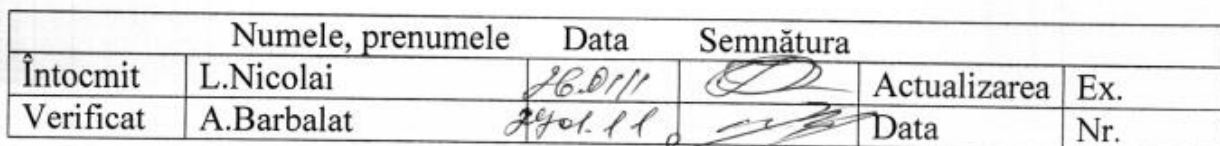 Numele, prenumele Data Semnătura
Întocmit L.Nicolai Actualizarea Ex.
Verificat A.Barbalat Data Nr.